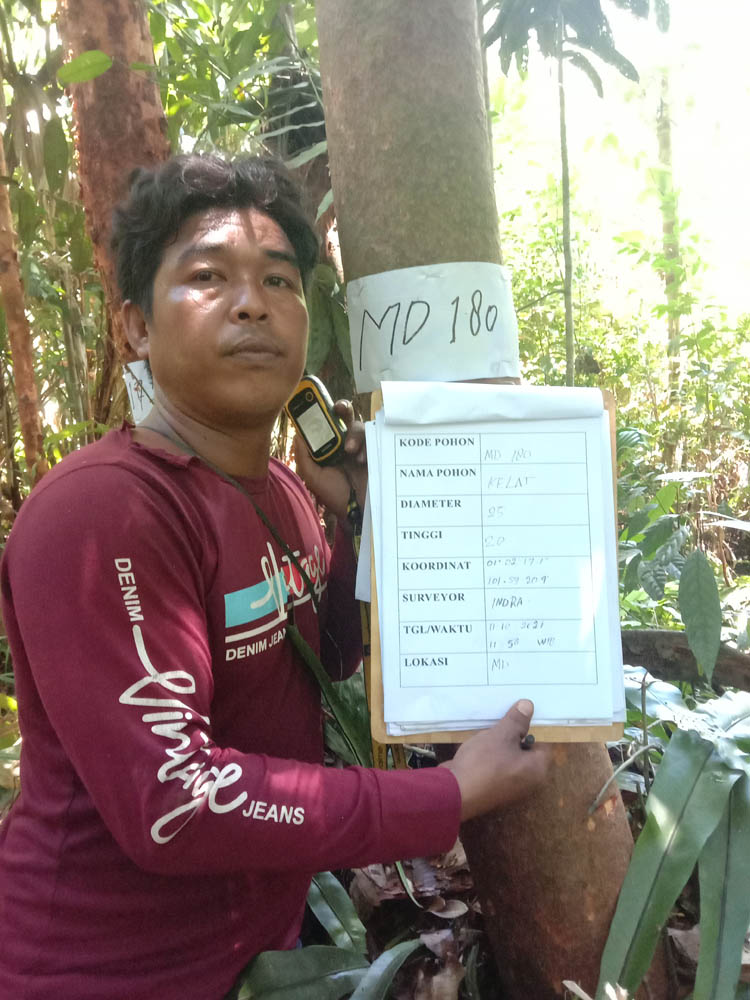 MD 180
KODE POHON MD 180
NAMA POHON KELAT
DIAMETER 25
TINGGI 20
KOORDINAT
SURVEYOR INDRA
TGL/WAKTU 11 10 2021
11 58 WIB
LOKASI MD
Vintage
DENIM JEANS
DENIM
Vintage
JEANS